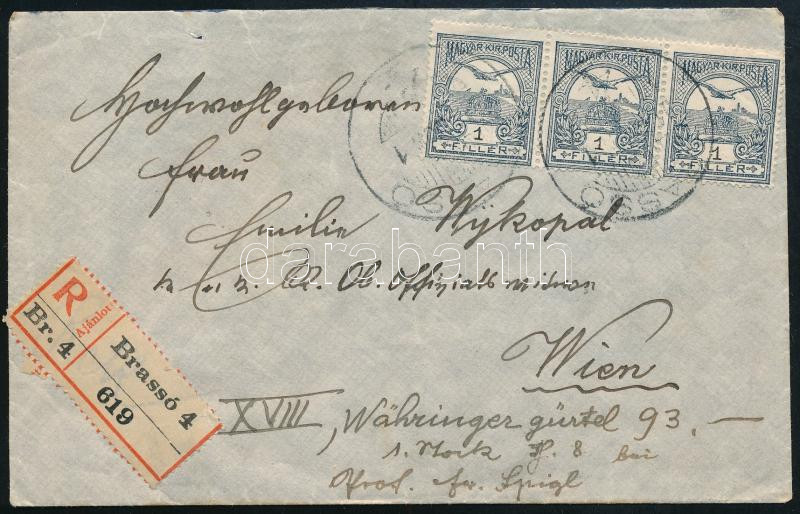 MAGYAR KIR. POSTA MAGYAR KIR. POSTA MAGYAR KIR. POSTA
1 1 1
FILLÉR FILLÉR FILLÉR
BRASSÓ
Hochwohlgeboren
Frau
Emilie Wykopal
k. u. k. Ob. Offizialswitwe
Wien
XVIII, Währinger gürtel 93.—
1. Stock T. 8 bei
Prof. Fr. Spigl
R
Ajánlott
Br. 4
Brassó 4
619
darabanth